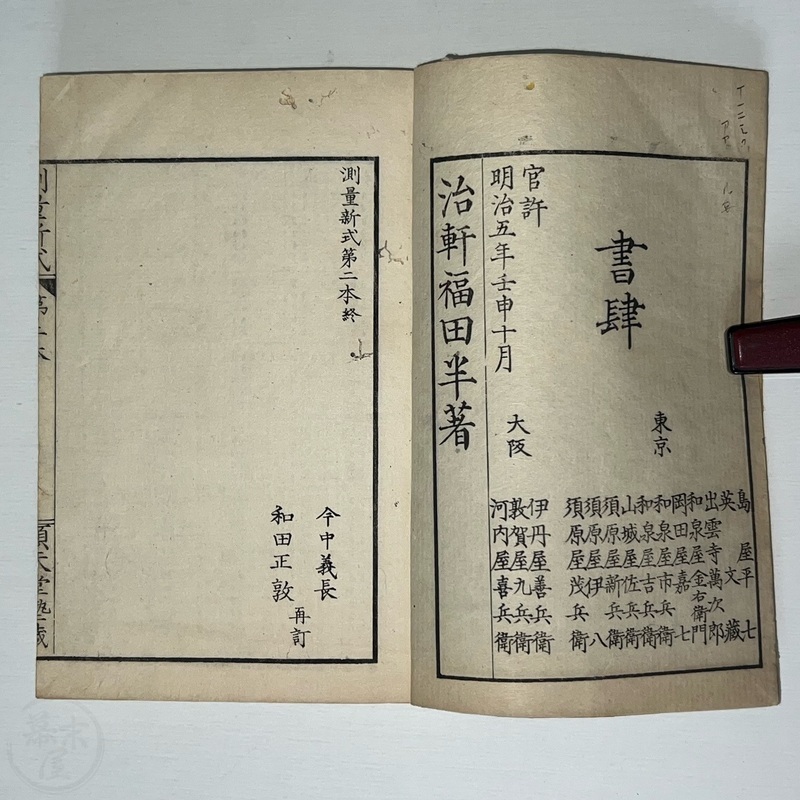 書肆
東京
島屋平七
英文藏
出雲寺萬次郎
和泉屋金右衛門
岡田屋嘉七
和泉屋市兵衛
和泉屋吉兵衛
山城屋佐兵衛
須原屋新兵衛
須原屋伊八
須原屋茂兵衛
大阪
伊丹屋善兵衛
敦賀屋九兵衛
河内屋喜兵衛
官許
明治五年壬申十月
治軒福田半著
測量新式第二本終
今中義長
和田正敦
再訂
測量新式 第二本
順天堂塾藏
幕末屋